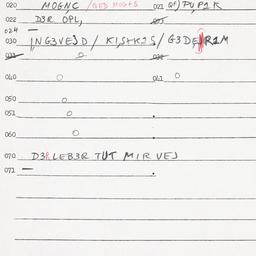 020 MOGNC /GED MOGTS 021 PUP1K
022 D3R OPL,
024
030 ING3VEJD / KISTKIS / G3DER1M
040 041
050
051
060
070 D3R LEB3R TUT MIR VEJ
071